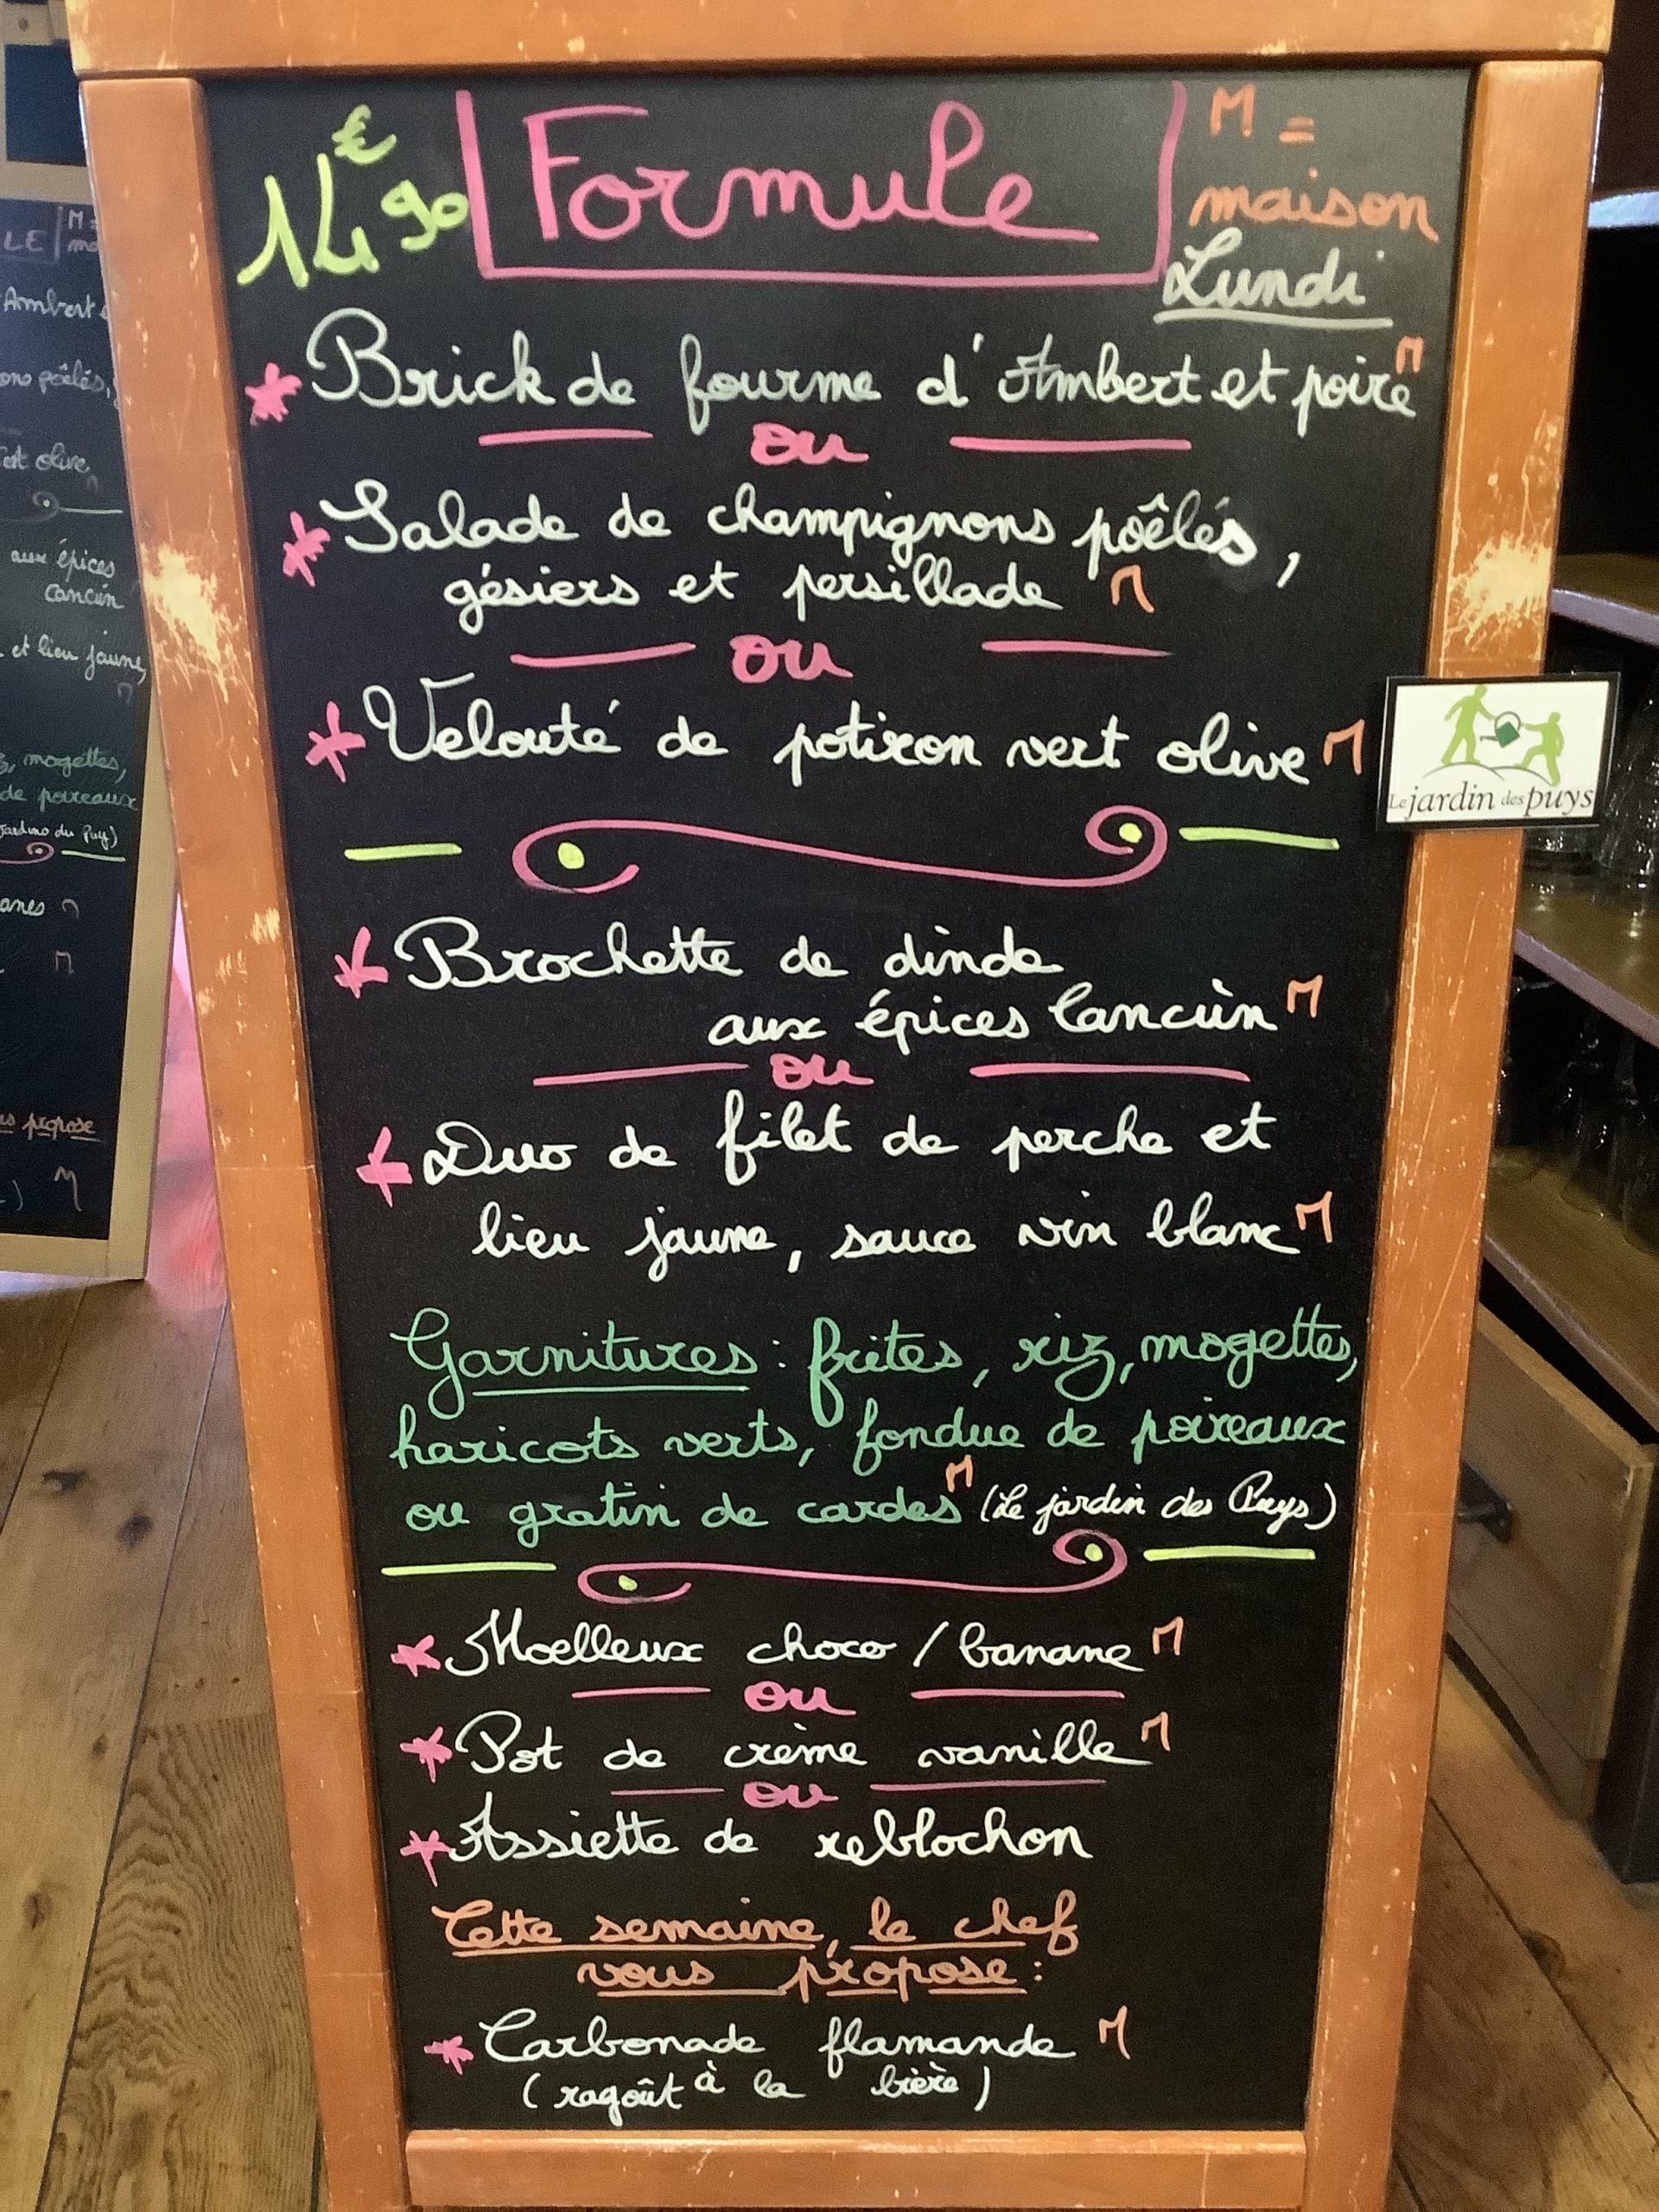 14€90
Formule
M =
maison
Lundi
* Brick de fourme d'Ambert et poire M
ou
* Salade de champignons poêlés,
gésiers et persillade M
ou
* Velouté de potiron vert olive M
Le jardin des puys
* Brochette de dinde
aux épices Cancùn M
ou
* Duo de filet de perche et
lieu jaune, sauce vin blanc M
Garnitures : frites, riz, mogettes,
haricots verts, fondue de poireaux
ou gratin de cardes M (Le jardin des Puys)
* Moelleux choco / banane M
ou
* Pot de crème vanille M
ou
* Assiette de reblochon
Cette semaine, le chef
vous propose :
* Carbonade flamande M
(ragoût à la bière)
LE
M =
Ambert
poêlés,
olive
aux épices
Cancùn
et lieu jaune,
mogettes,
de poireaux
propose
M